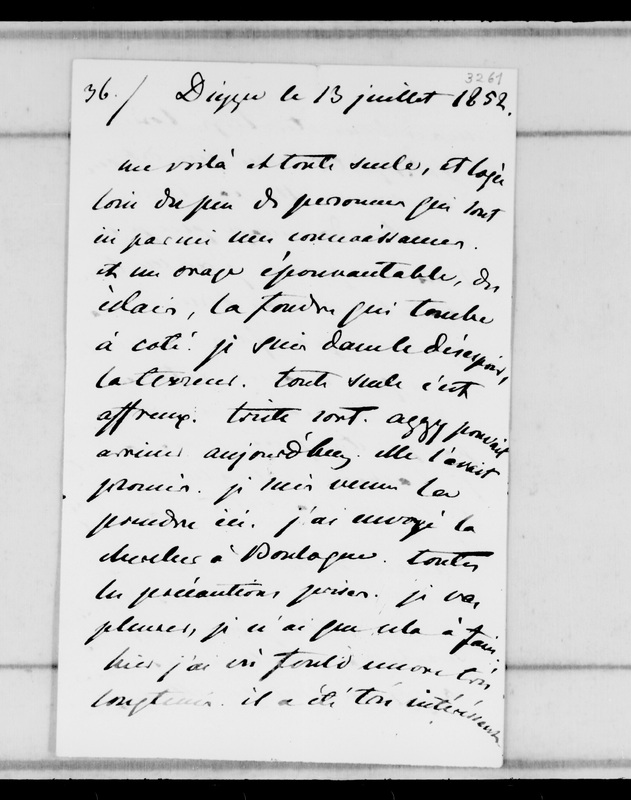 3261
36./ Dieppe le 13 juillet 1852.
me voilà et toute seule, et logée
loin du peu de personnes qui sont
ici parmi mes connaissances.
et un orage épouvantable, des
éclairs, la foudre qui tombe
à coté. je suis dans le désespoir,
la terreur. toute seule c'est
affreux. triste sort. aggy pouvait
arriver aujourd'huy. elle l'avait
promis. je suis venu la
prendre ici. j'ai envoyé la
chercher à Boulogne. toutes
les précautions prises. je vas
pleurer, je n'ai que cela à faire
hier j'ai vu Fould encore très
longtems. il a été très intéressant.